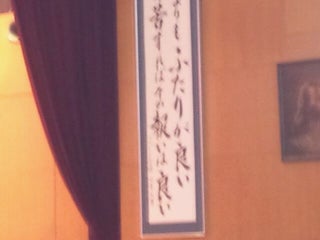 よりもふたりが良い
苦すればその報いは良い